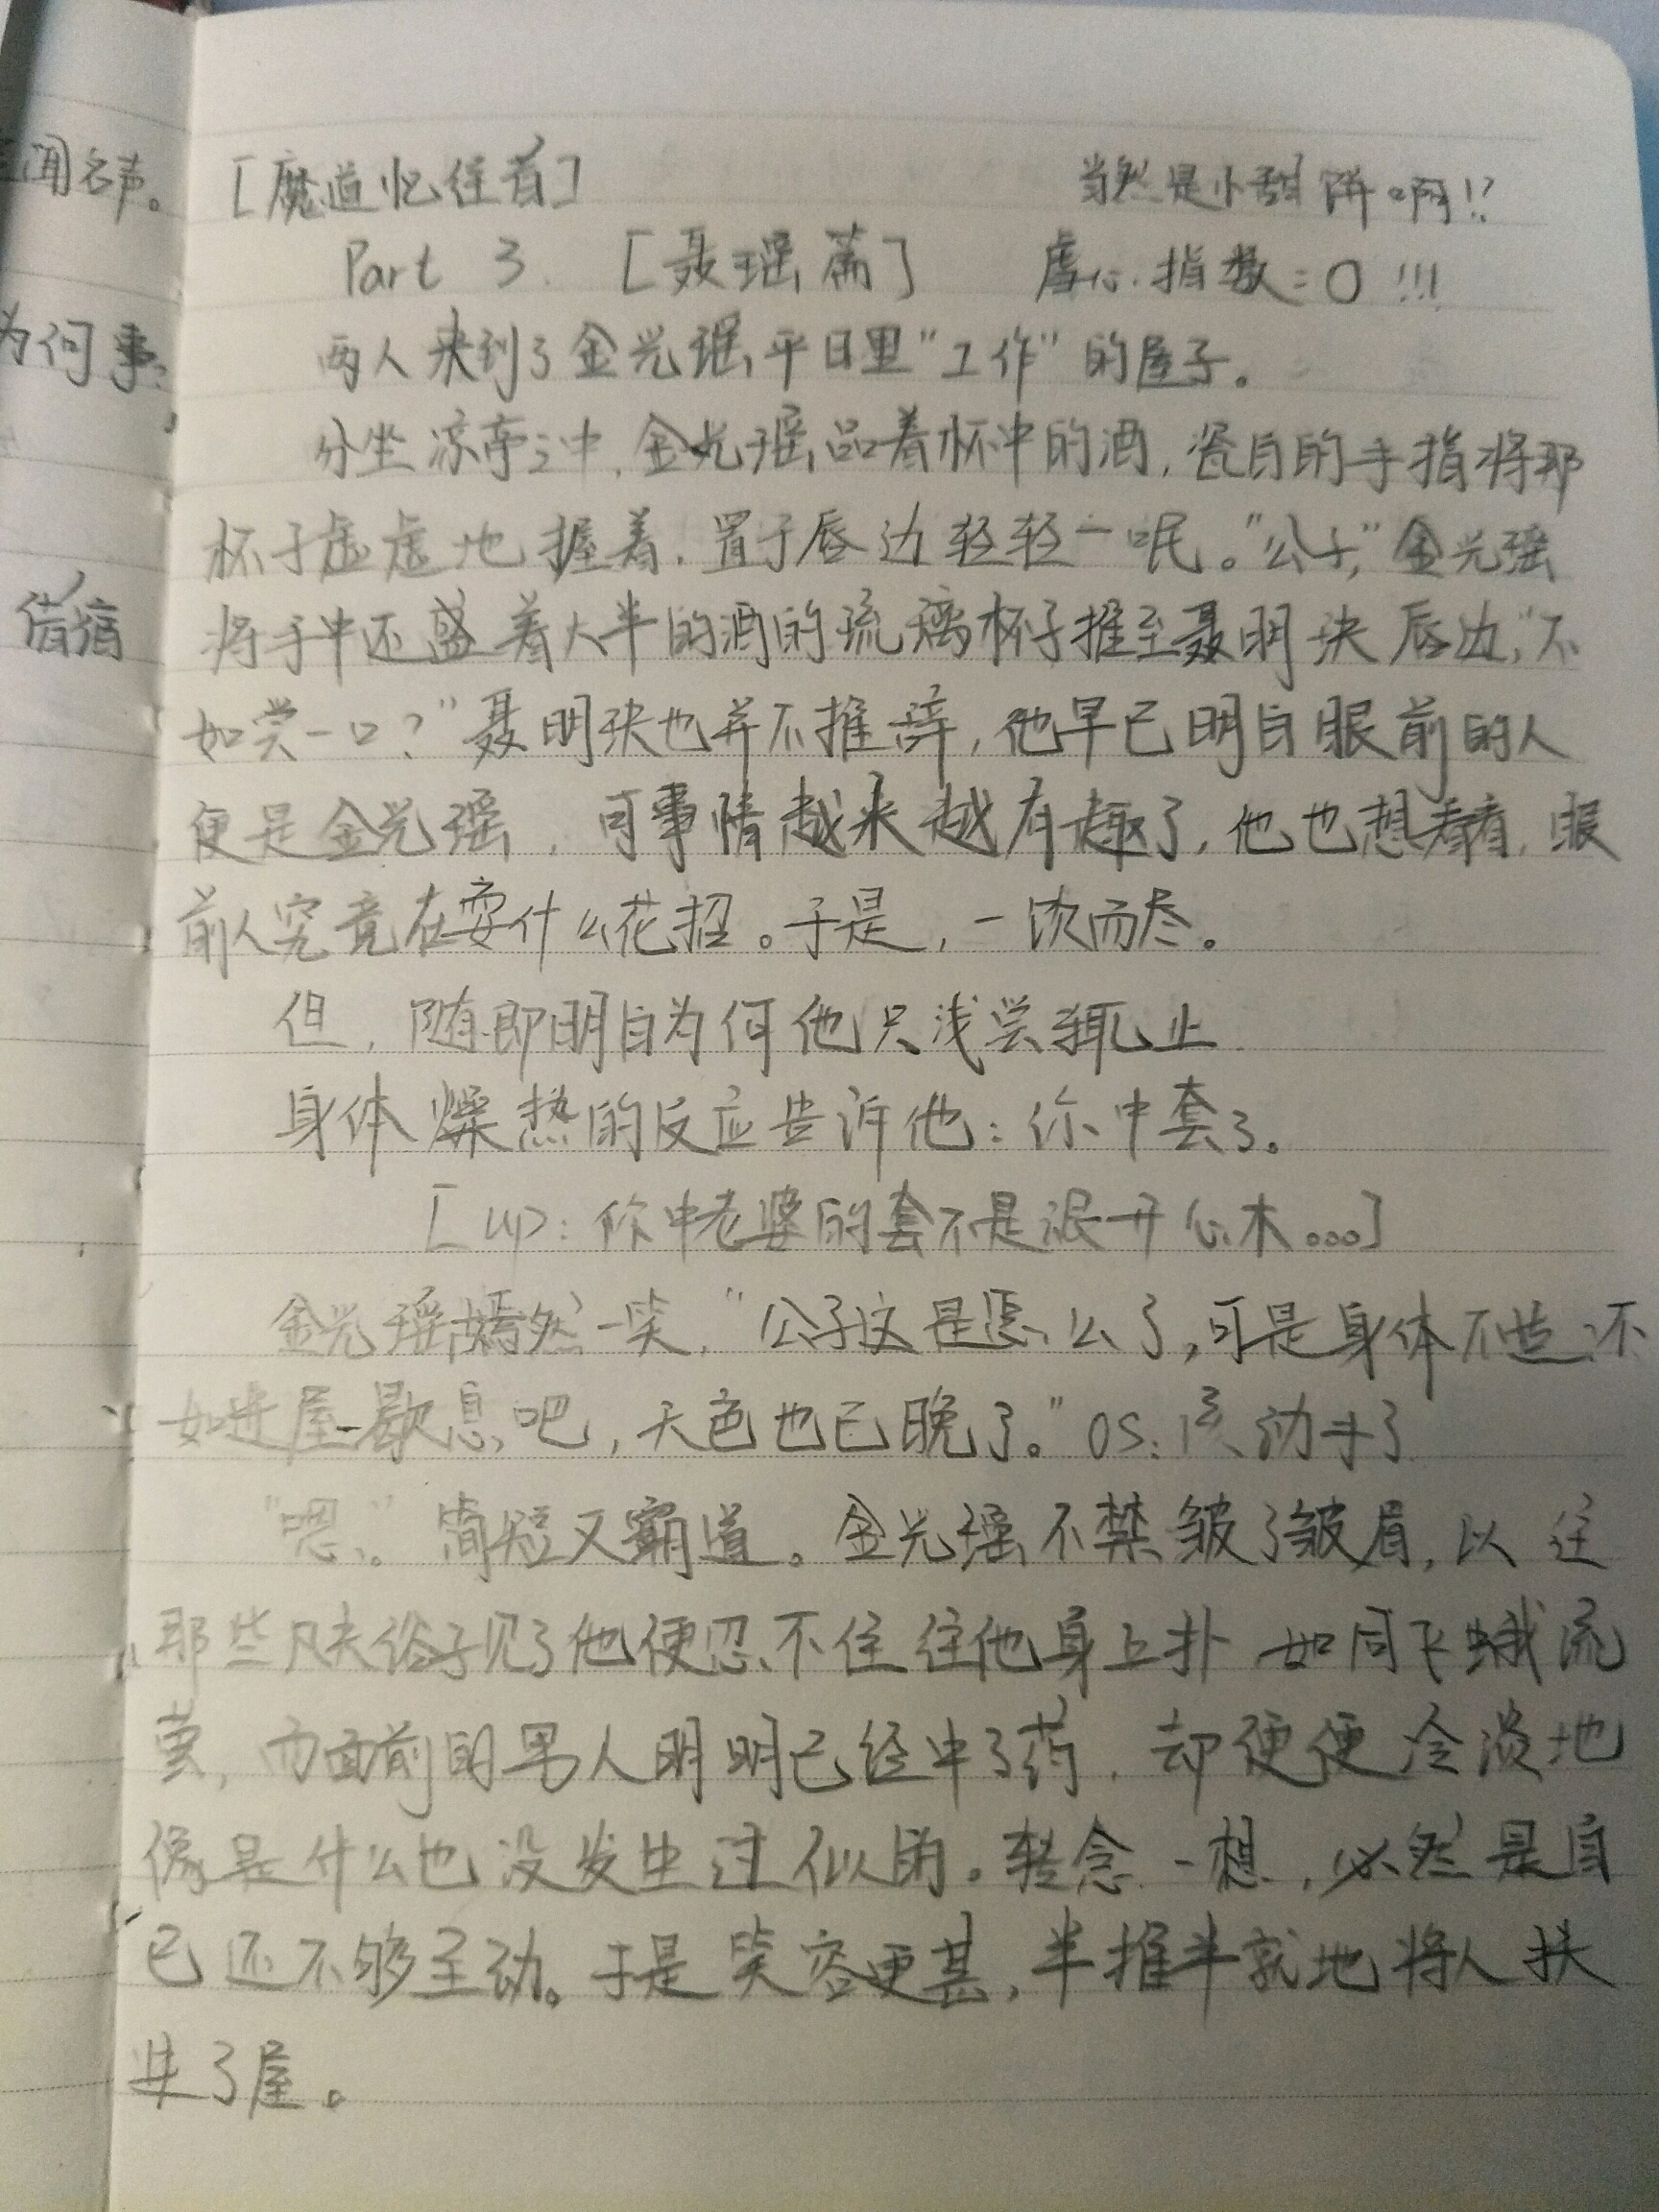 闻名声。
为何事:
借宿
[魔道忆往昔]
当然是小甜饼啊!?
Part 3. [聂瑶篇]
虐心指数=0!!!
两人来到了金光瑶平日里"工作"的屋子。
分坐凉亭之中,金光瑶品着杯中的酒,瓷白的手指将那
杯子虚虚地握着,置于唇边轻轻一呡。"公子,"金光瑶
将手中还盛着大半的酒的琉璃杯子推至聂明玦唇边,"不
如尝一口?"聂明玦也并不推辞,他早已明白眼前的人
便是金光瑶,可事情越来越有趣了,他也想看看,眼
前人究竟在耍什么花招。于是,一饮而尽。
但,随即明白为何他只浅尝辄止
身体燥热的反应告诉他:你中套了。
[up:你中老婆的套不是很开心木...]
金光瑶嫣然一笑,"公子这是怎么了,可是身体不适,不
如进屋歇息吧,天色也已晚了。"OS:该动手了
"嗯。"简短又霸道。金光瑶不禁皱了皱眉,以往
那些凡夫俗子见了他便忍不住往他身上扑 如同飞蛾流
萤,而面前的男人明明已经中了药,却便便冷淡地
像是什么也没发生过似的。转念一想,必然是自
己还不够主动。于是笑容更甚,半推半就地将人扶
进了屋。